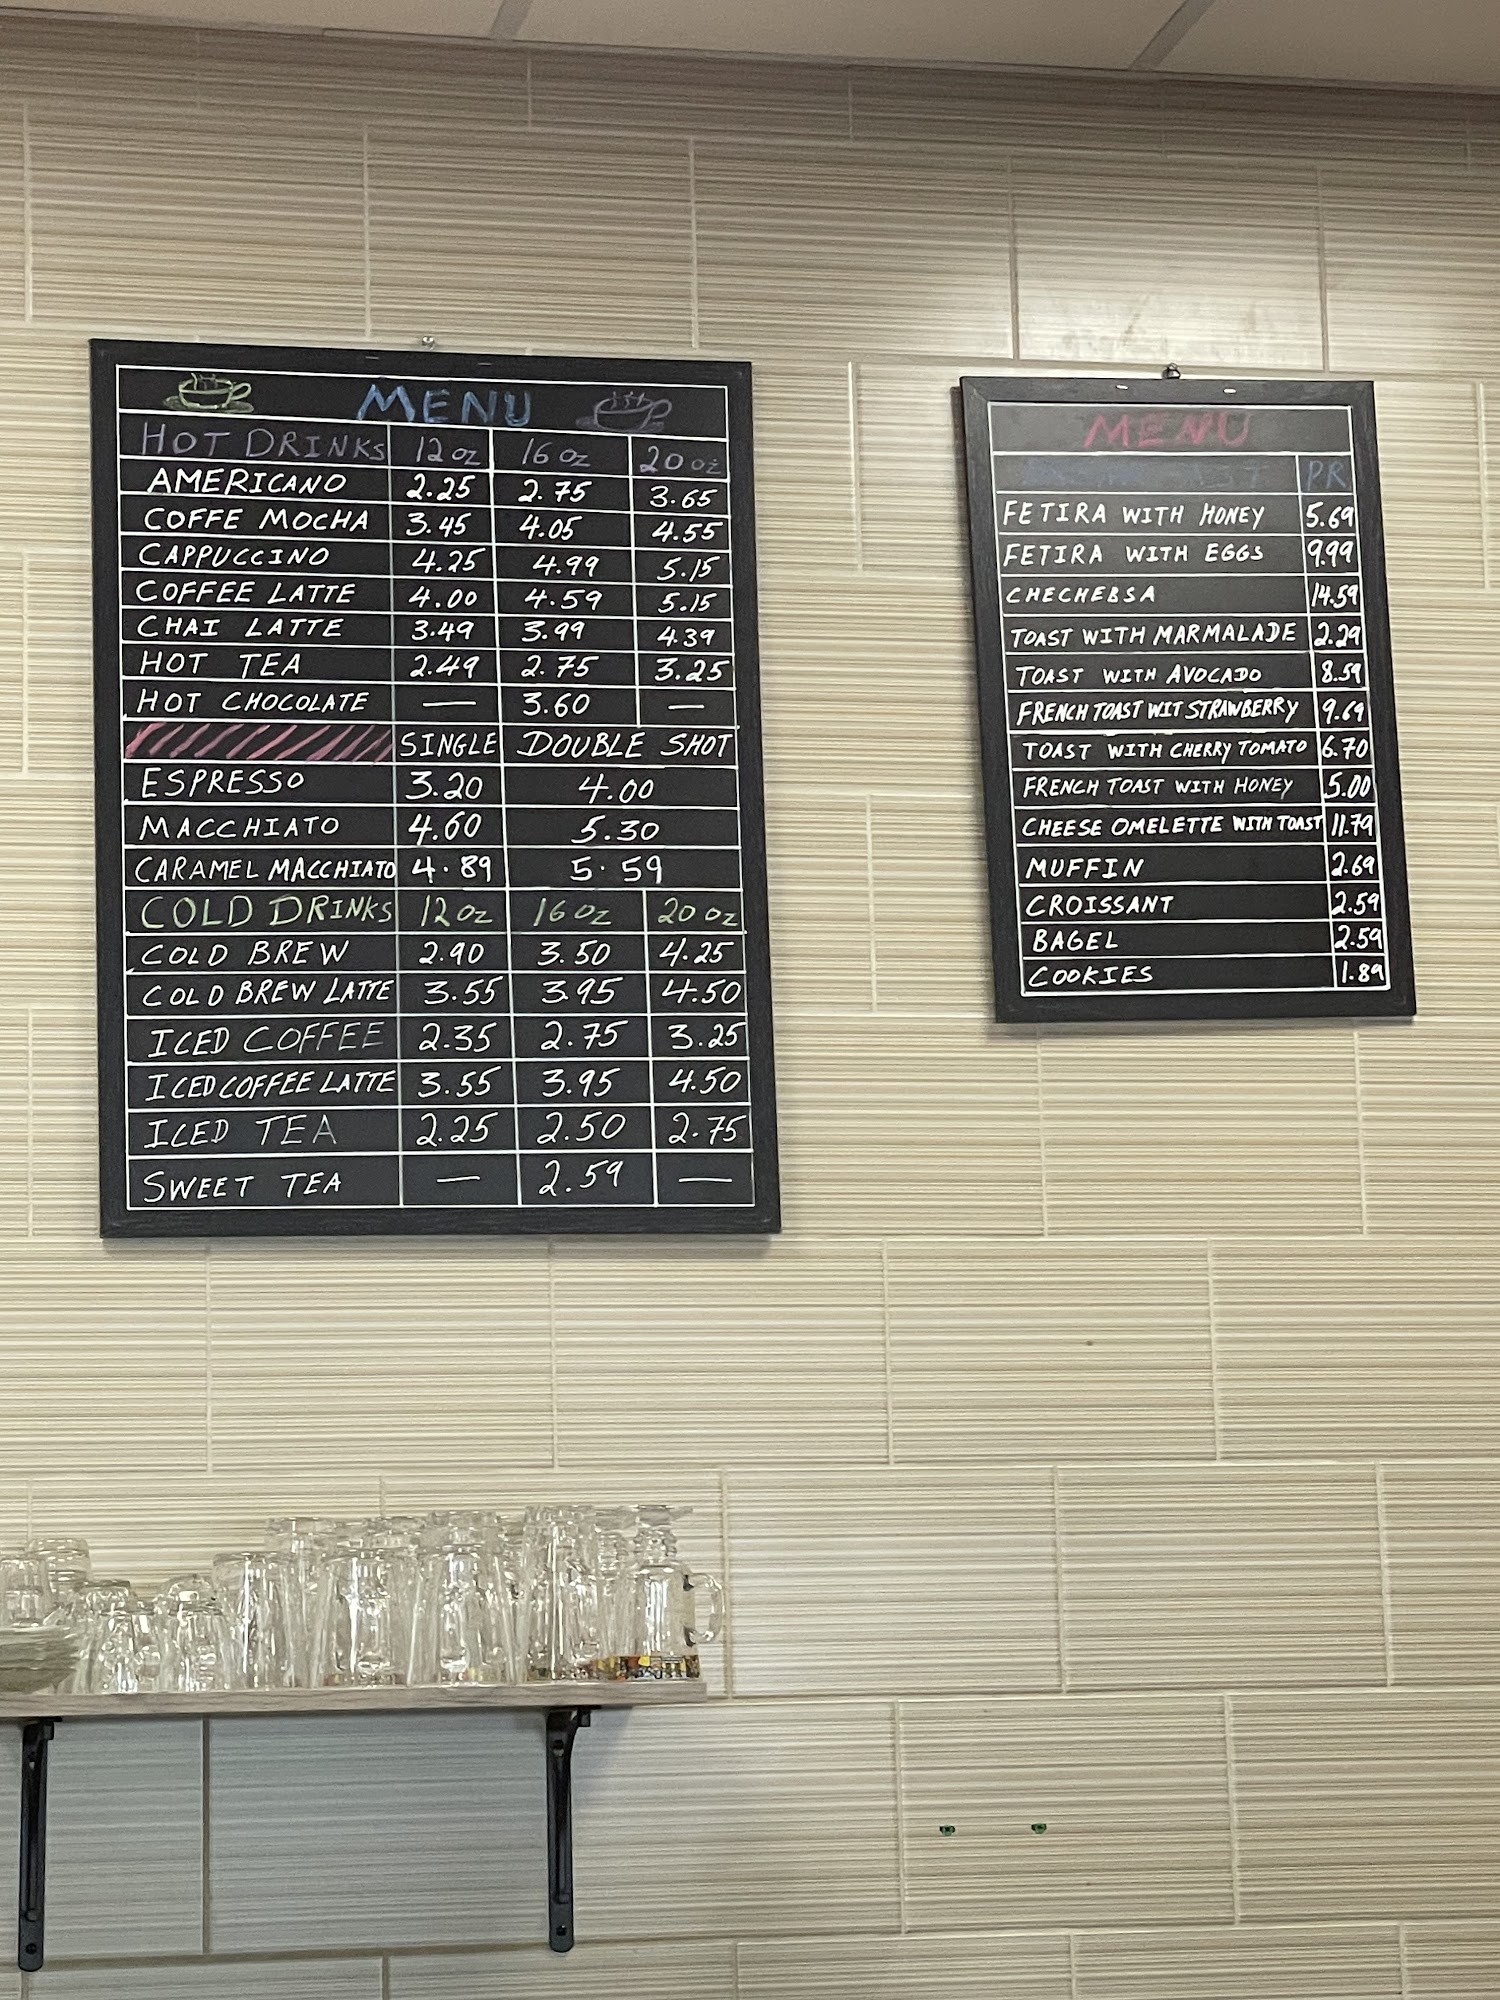 MENU
HOT DRINKS 12 oz 16 oz 20 oz
AMERICANO 2.25 2.75 3.65
COFFE MOCHA 3.45 4.05 4.55
CAPPUCCINO 4.25 4.99 5.15
COFFEE LATTE 4.00 4.59 5.15
CHAI LATTE 3.49 3.99 4.39
HOT TEA 2.49 2.75 3.25
HOT CHOCOLATE — 3.60 —
SINGLE DOUBLE SHOT
ESPRESSO 3.20 4.00
MACCHIATO 4.60 5.30
CARAMEL MACCHIATO 4.89 5.59
COLD DRINKS 12 oz 16 oz 20 oz
COLD BREW 2.90 3.50 4.25
COLD BREW LATTE 3.55 3.95 4.50
ICED COFFEE 2.35 2.75 3.25
ICED COFFEE LATTE 3.55 3.95 4.50
ICED TEA 2.25 2.50 2.75
SWEET TEA — 2.59 —
MENU
PR
FETIRA WITH HONEY 5.69
FETIRA WITH EGGS 9.99
CHECHEBSA 14.59
TOAST WITH MARMALADE 2.29
TOAST WITH AVOCADO 8.59
FRENCH TOAST WIT STRAWBERRY 9.69
TOAST WITH CHERRY TOMATO 6.70
FRENCH TOAST WITH HONEY 5.00
CHEESE OMELETTE WITH TOAST 11.79
MUFFIN 2.69
CROISSANT 2.59
BAGEL 2.59
COOKIES 1.89